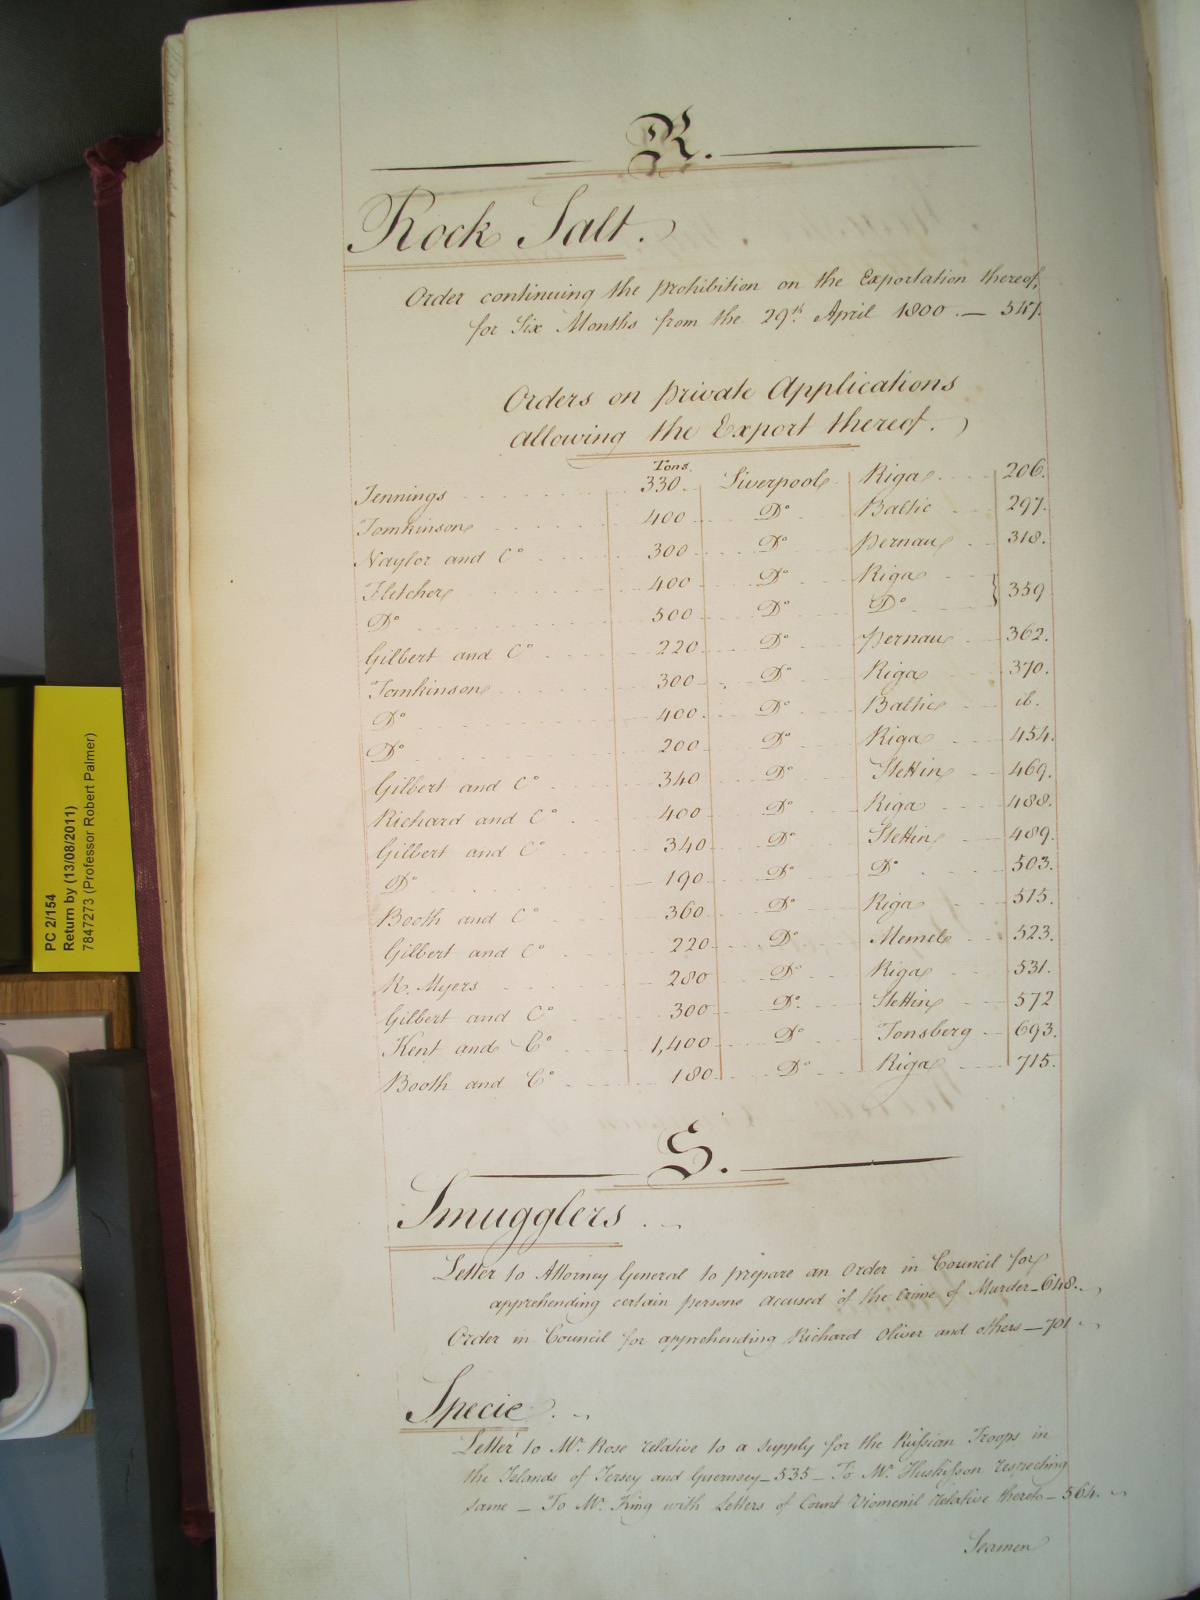 R.
Rock Salt.
Order continuing the prohibition on the Exportation thereof,
for Six Months from the 29th. April 1800. — 547.
Orders on private Applications
allowing the Export thereof.
Tons.
Jennings 330. Liverpool Riga 206.
Tomkinson 400 Do Baltic 297.
Naylor and Co 300 Do Pernau 318.
Fletcher 400 Do Riga
Do 500 Do Do } 359
Gilbert and Co 220 Do Pernau 362.
Tomkinson 300 Do Riga 370.
Do 400. Do Baltic ib.
Do 200 Do Riga 454.
Gilbert and Co 340 Do Stettin 469.
Richard and Co 400 Do Riga 488.
Gilbert and Co 340 Do Stettin 489.
Do 190 Do Do 503.
Booth and Co 360 Do Riga 515.
Gilbert and Co 220 Do Memel 523.
R. Myers 280 Do Riga 531.
Gilbert and Co 300 Do Stettin 572
Kent and Co 1,400 Do Tonsberg 693.
Booth and Co 180 Do Riga 715.
S.
Smugglers
Letter to Attorney General to prepare an Order in Council for
apprehending certain persons accused of the Crime of Murder — 648.
Order in Council for apprehending Richard Oliver and others — 701
Specie.
Letter to Mr. Rose relative to a supply for the Russian Troops in
the Islands of Jersey and Guernsey — 535 — To Mr. Huskisson respecting
same — To Mr. King with Letters of Count Viomenil relative thereto — 564.
Seamen
PC 2/154
Return by (13/08/2011)
7847273 (Professor Robert Palmer)